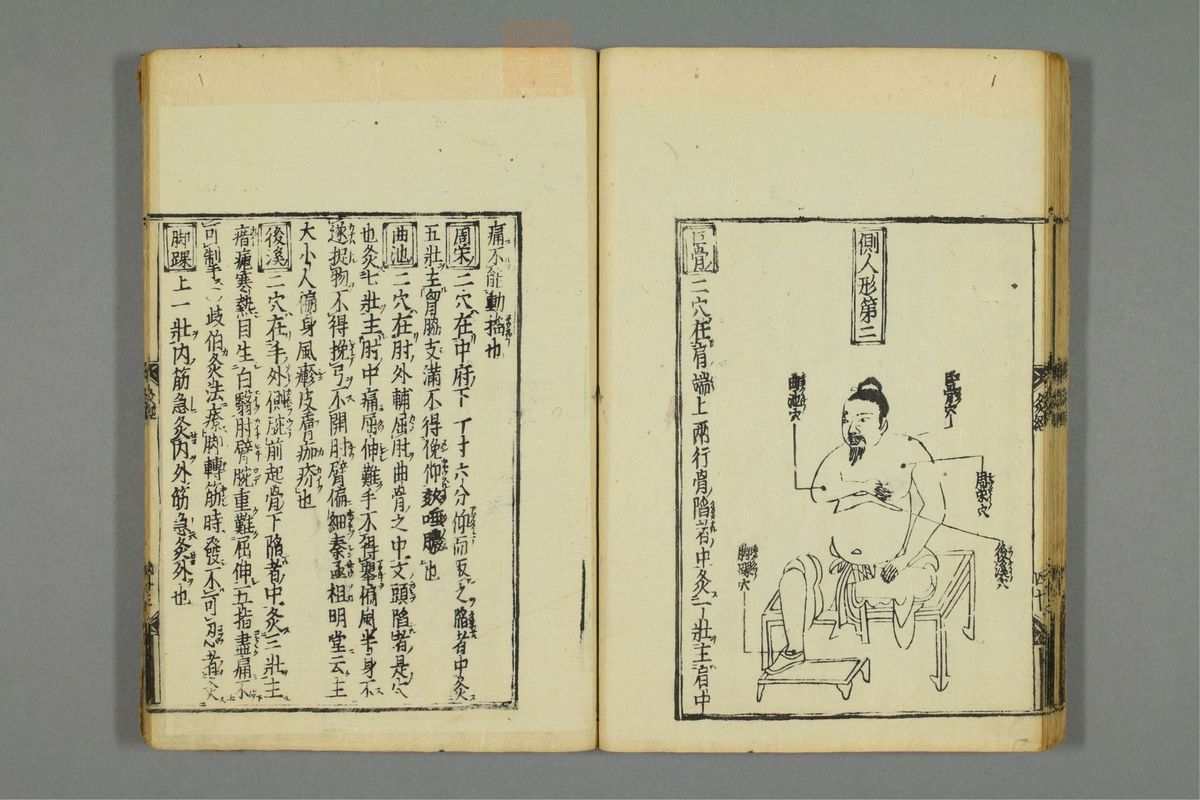 側人形第三
巨骨穴
周榮穴
後溪穴
曲池穴
脚踝穴
巨骨 二穴在肩端上兩行骨陷者中灸一壯主肩中
痛不能動搖也
周榮 二穴在中府下一寸六分仰而取之陷者中灸
五壯主胸脇支滿不得俛仰欬唾膿也
曲池 二穴在肘外輔屈肘曲骨之中文頭陷者是穴
也灸七壯主肘中痛屈伸難手不得舉偏風半身不
遂捉物不得挽弓不開肘臂偏細秦丞祖明堂云主
大小人徧身風癮皮膚痂疥也
後溪 二穴在手外側腕前起骨下陷者中灸三壯主
瘧寒熱目生白翳肘臂腕重難屈伸五指盡痛不
可制也歧伯灸法療脚轉筋時發不可忍者灸
脚踝上一壯內筋急灸內外筋急灸外也
灸經
四十